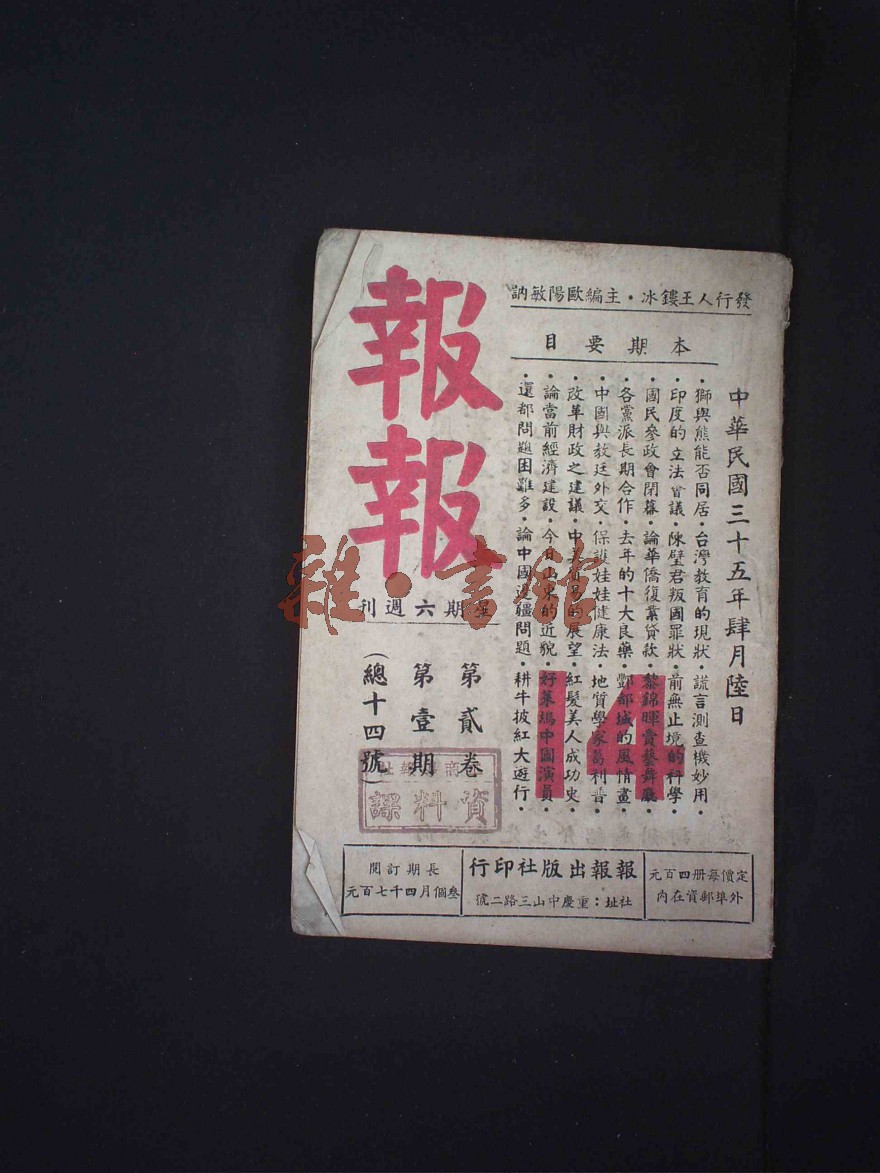 發行人王鏤冰・主編歐陽敏訥
本期要目
中華民國三十五年肆月陸日
・獅與熊能否同居・台灣教育的現狀・謊言測查機妙用・
・印度的立法會議・陳璧君叛國罪狀・前無止境的科學・
・國民參政會閉幕・論華僑復業貸款・黎錦暉賣藝舞廳・
・各黨派長期合作・去年的十大良藥・酆都城的風情畫・
・中國與教廷外交・保護娃娃健康法・地質學家葛利普・
・改革財政之建議・中美貿易的展望・紅髮美人成功史・
・論當前經濟建設・今日山東的近貌・好萊塢中國演員・
・還都問題困難多・論中國邊疆問題・耕牛披紅大遊行・
14
報報
星期六週刊
第貳卷
第壹期
(總十四號)
資料課
雜・書館
定價每冊四百元
外埠郵資在內
報報出版社印行
社址：重慶中山三路二號
長期訂閱
叁個月四千七百元